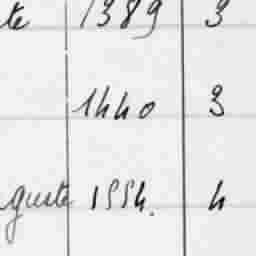 te 1389 3
1440 3
guste 1554. 4